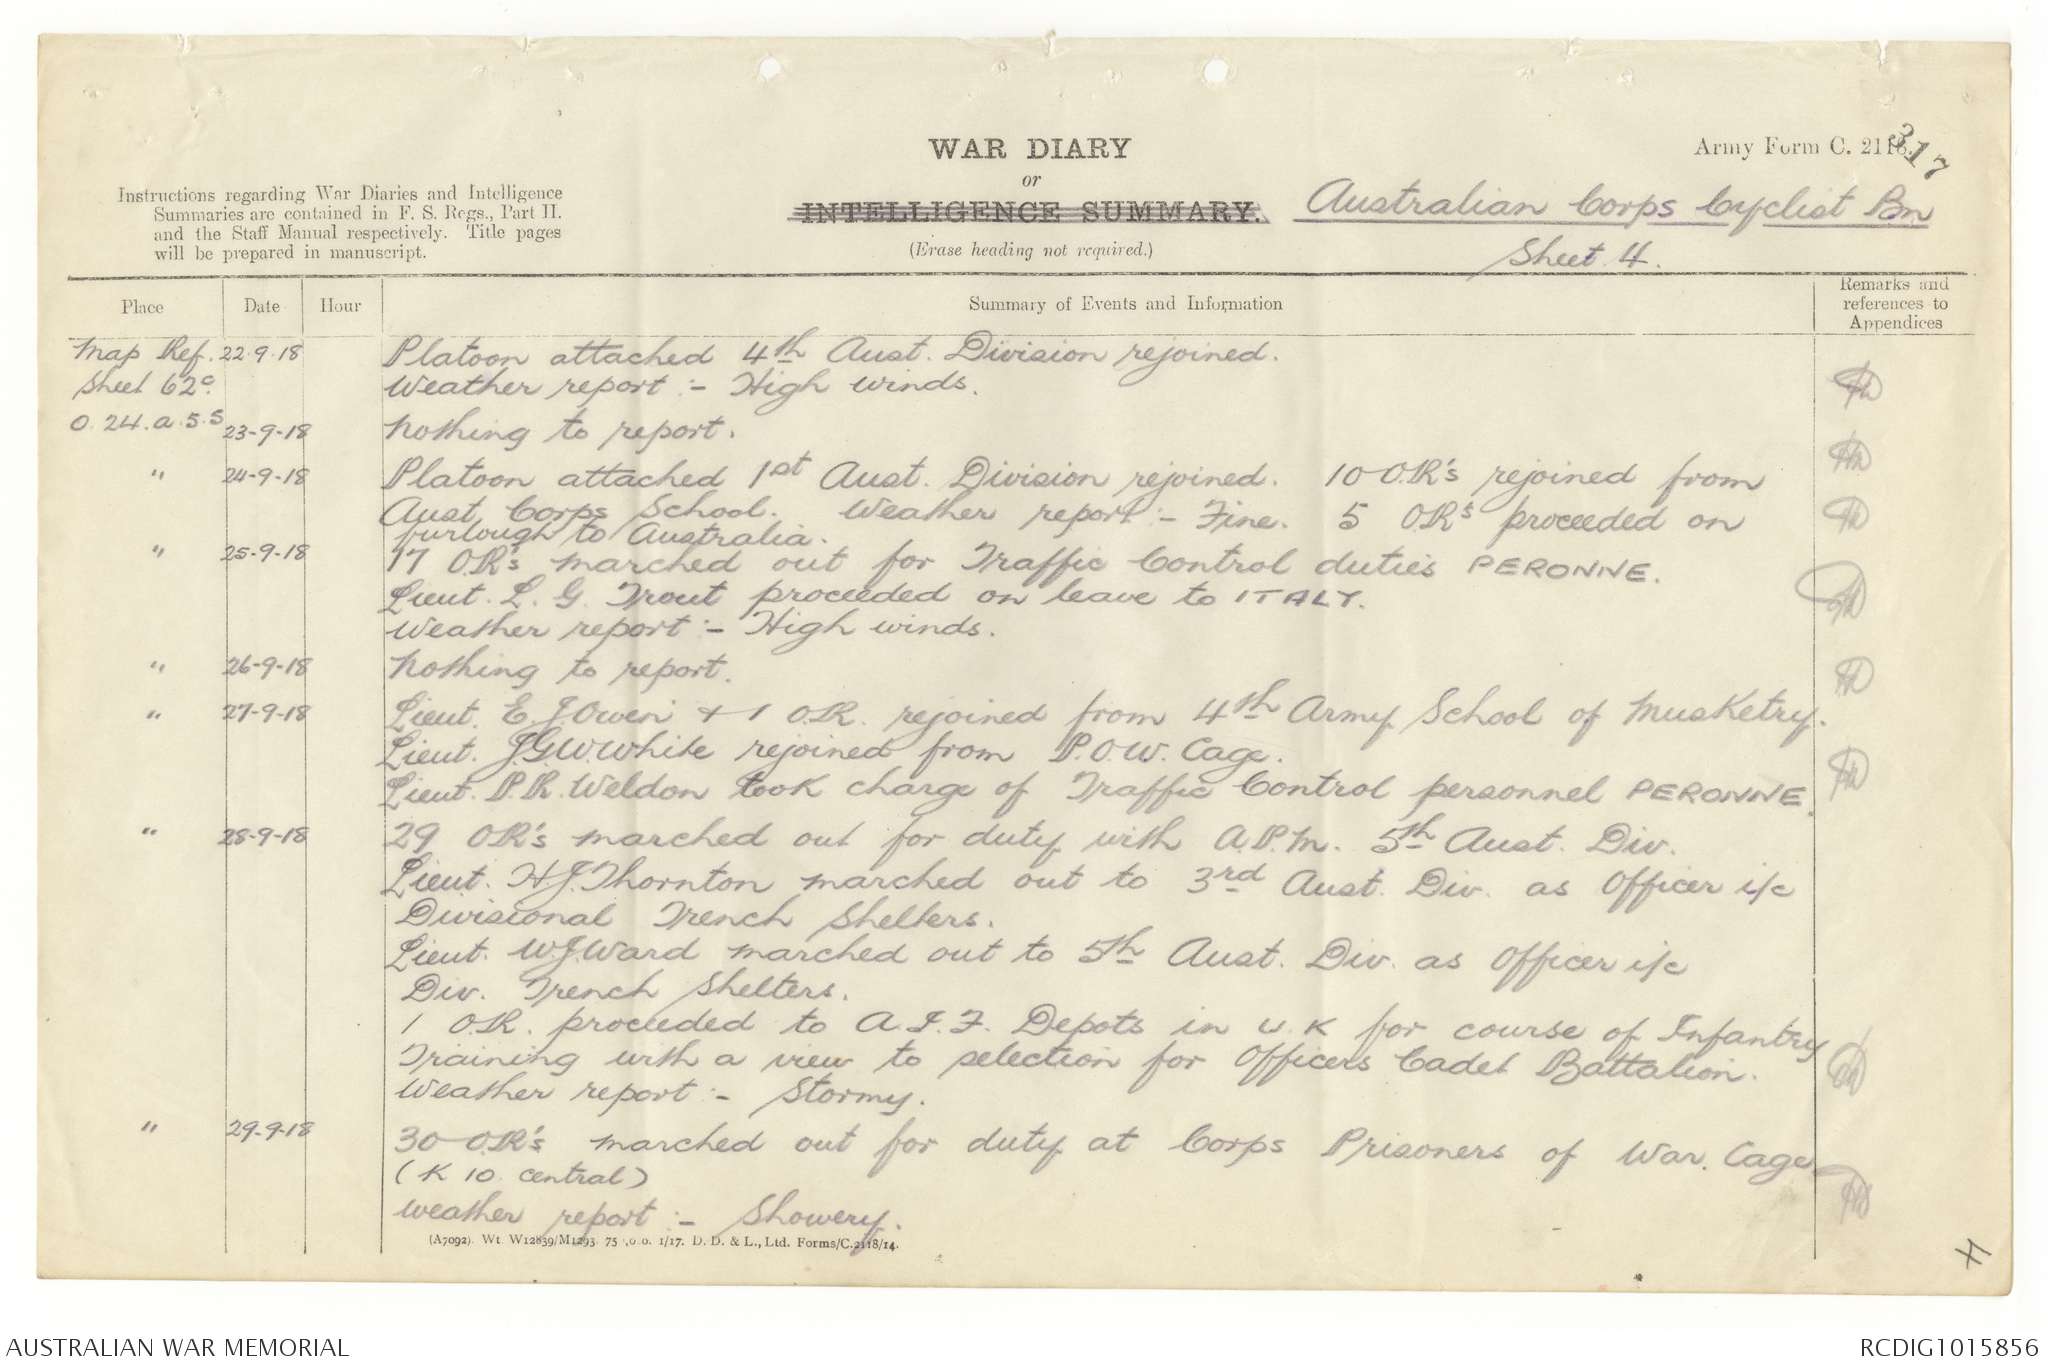 WAR DIARY
or
INTELLIGENCE SUMMARY.
(Erase heading not required.)
Army Form C. 2118.
317
Instructions regarding War Diaries and Intelligence
Summaries are contained in F. S. Regs., Part II.
and the Staff Manual respectively. Title pages
will be prepared in manuscript.
Australian Corps Cyclist Bn
Sheet 4.
Place Date Hour Summary of Events and Information Remarks and references to Appendices
Map Ref. 22.9.18 Platoon attached 4th Aust. Division rejoined.
Sheet 62c. Weather report :- High winds.
O.24.a.5.5 23-9-18 Nothing to report.
" 24-9-18 Platoon attached 1st Aust. Division rejoined. 10 O.R's rejoined from
Aust. Corps School. Weather report :- Fine. 5 ORs proceeded on
furlough to Australia.
" 25-9-18 17 O.R's marched out for Traffic Control duties PERONNE.
Lieut. L. G. Trout proceeded on leave to ITALY.
Weather report :- High winds.
" 26-9-18 Nothing to report.
" 27-9-18 Lieut. E.J.Owen + 1 O.R. rejoined from 4th Army School of Musketry.
Lieut. J.G.W.White rejoined from P.O.W. Cage.
Lieut. P.R. Weldon took charge of Traffic Control personnel PERONNE.
" 28-9-18 29 O.R's marched out for duty with A.P.M. 5th Aust. Div.
Lieut. H.J.Thornton marched out to 3rd Aust. Div. as Officer i/c
Divisional Trench Shelters.
Lieut. W.J.Ward marched out to 5th Aust. Div. as Officer i/c
Div. Trench Shelters.
1 O.R. proceeded to A.I.F. Depots in U.K for course of Infantry
Training with a view to selection for Officers Cadet Battalion.
Weather report :- Stormy.
" 29-9-18 30 O.R's marched out for duty at Corps Prisoners of War. Cage
(K 10 central)
Weather report :- Showery.
(A7092). Wt. W12839/M1293. 75 ,0 0. 1/17. D. D. & L., Ltd. Forms/C.2118/14.
AUSTRALIAN WAR MEMORIAL
RCDIG1015856